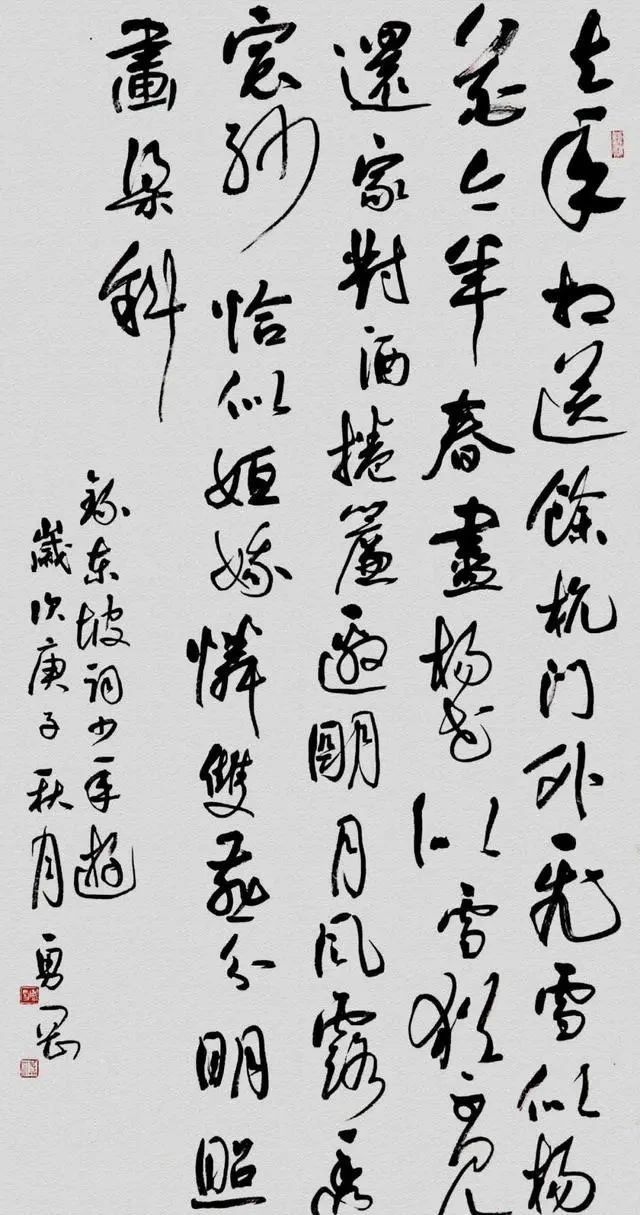 去年相送餘杭门外飛雪似楊
花今年春盡楊花似雪猶不見
還家對酒捲簾邀明月风露透
窓紗恰似姮娥憐雙燕分明照
畫梁斜
錄東坡词少年遊
歲次庚子秋月勇